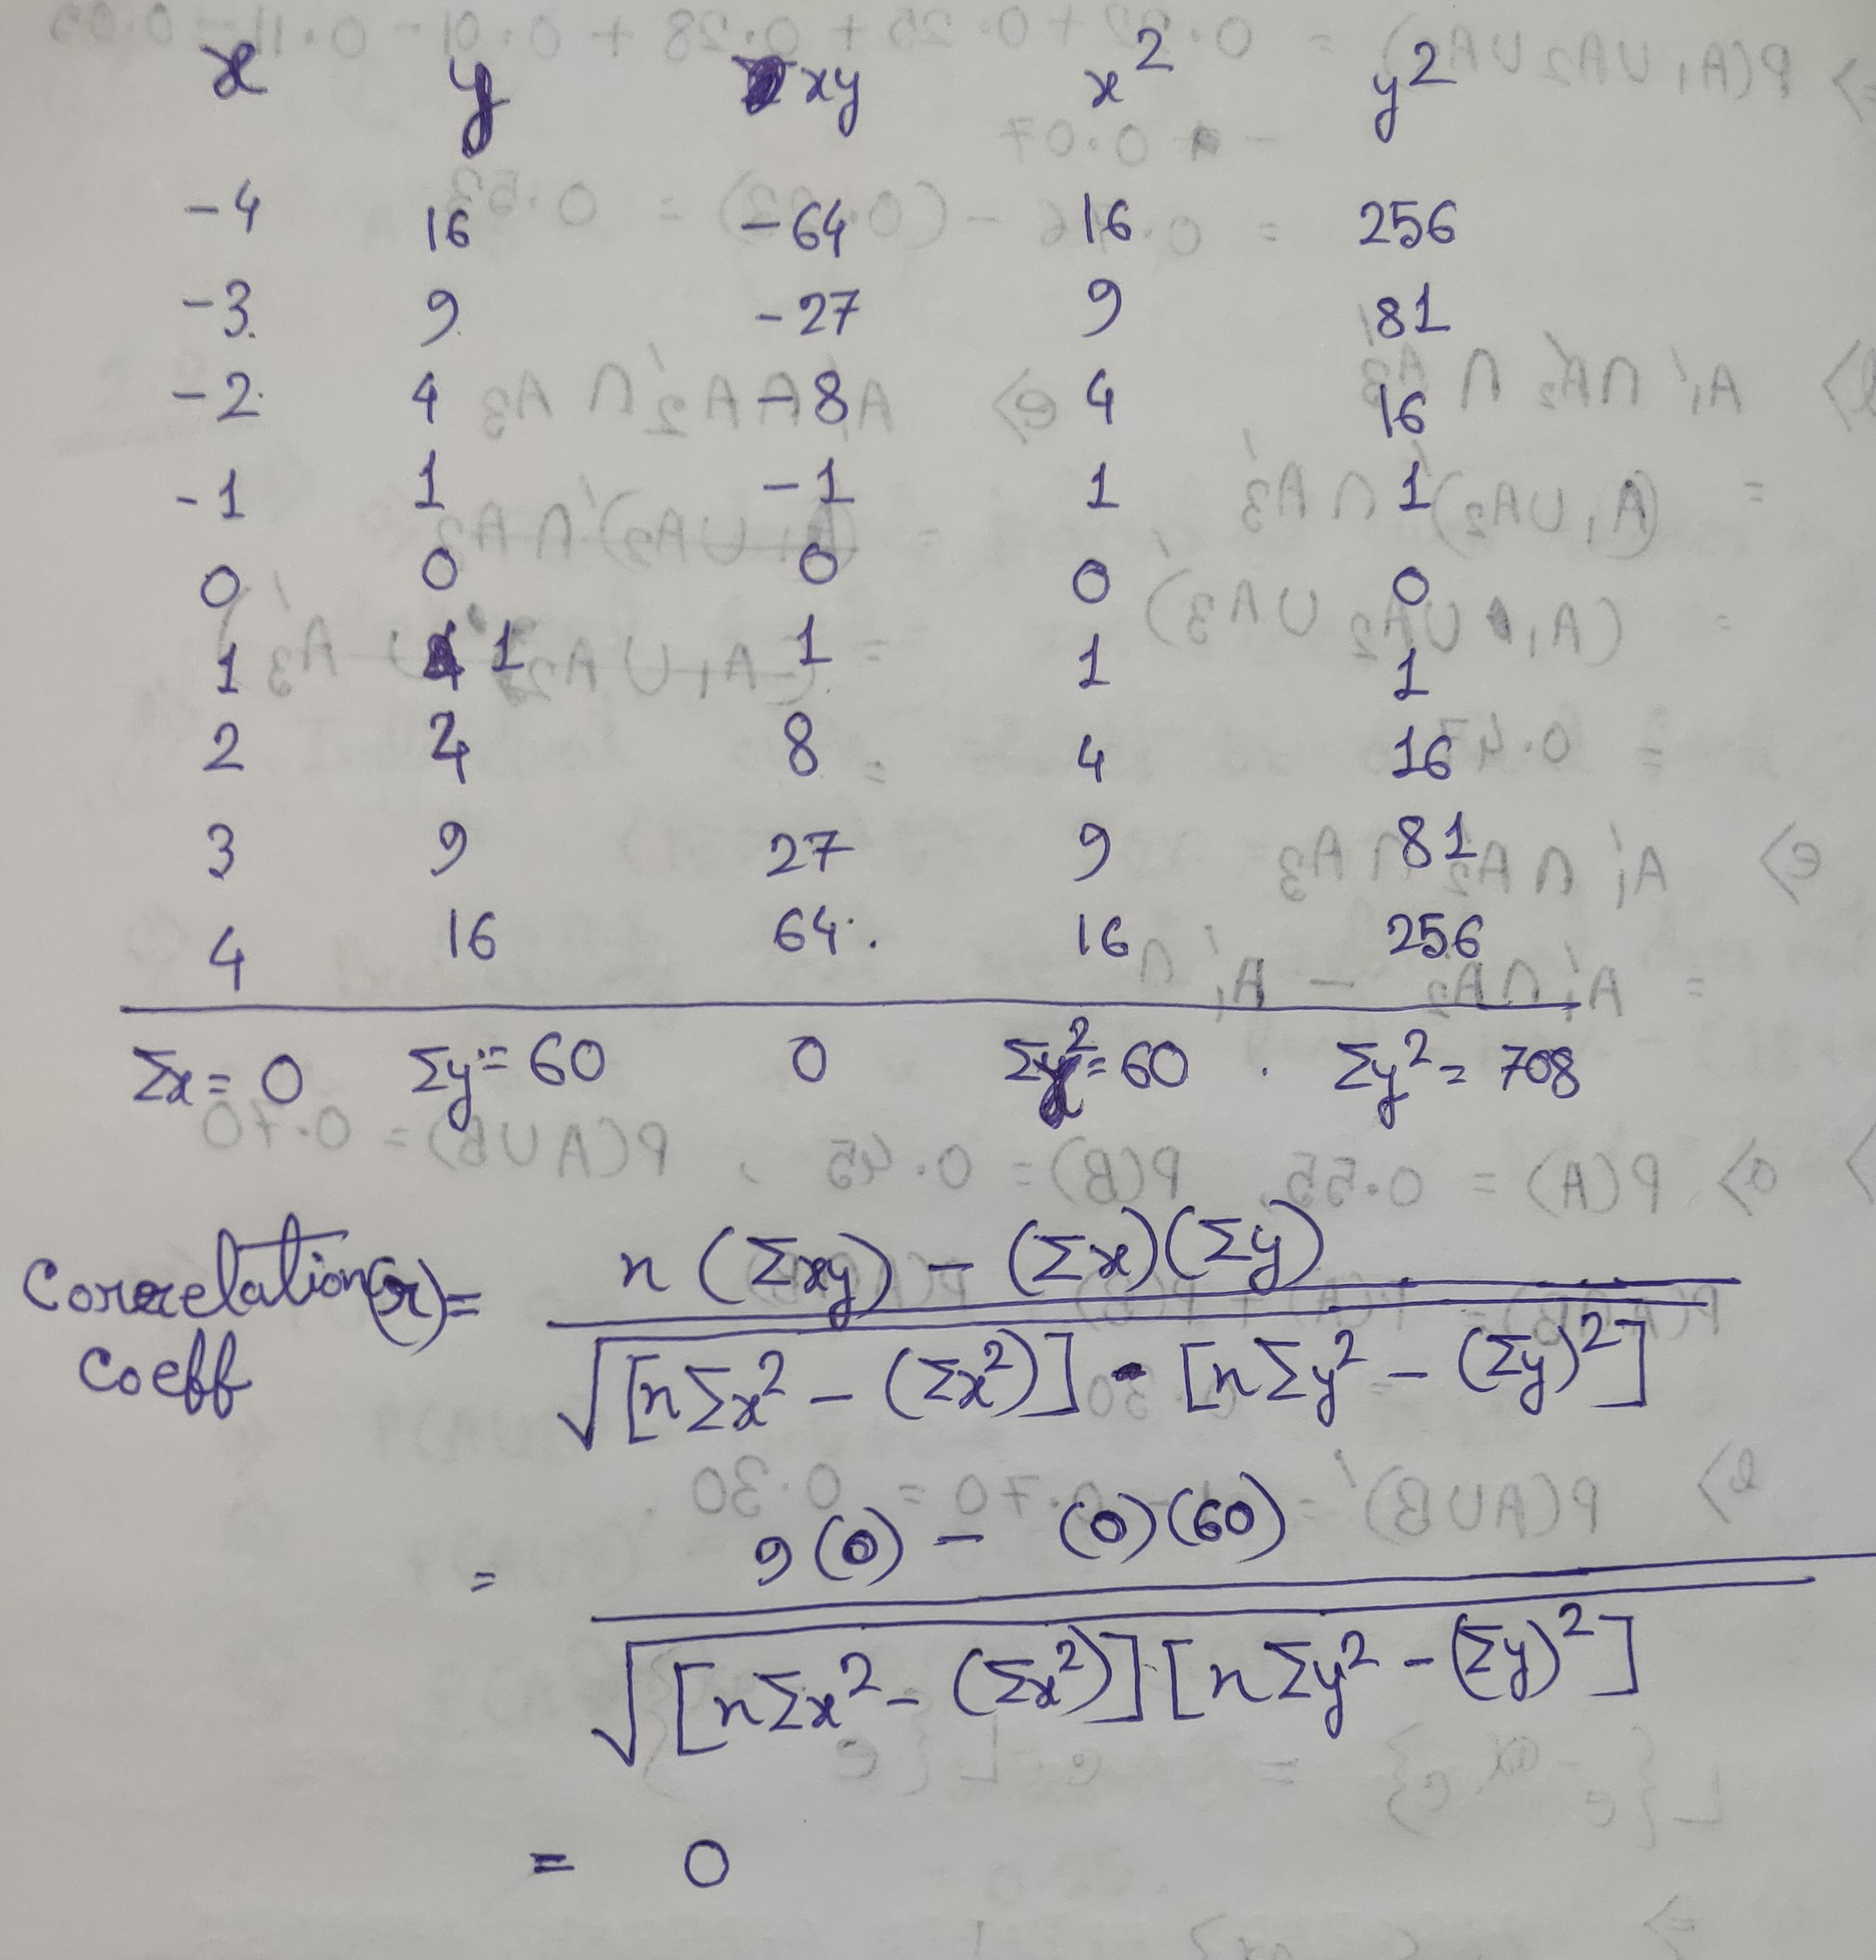 x y xy x² y²
-4 16 -64 16 256
-3 9 -27 9 81
-2 4 -8 4 16
-1 1 -1 1 1
0 0 0 0 0
1 1 1 1 1
2 4 8 4 16
3 9 27 9 81
4 16 64 16 256
Σx = 0 Σy = 60 0 Σx² = 60 Σy² = 708
Correlation (r) = n(Σxy) - (Σx)(Σy)
Coeff √[nΣx² - (Σx²)] · [nΣy² - (Σy)²]
= 9(0) - (0)(60)
√[nΣx² - (Σx²)] [nΣy² - (Σy)²]
= 0